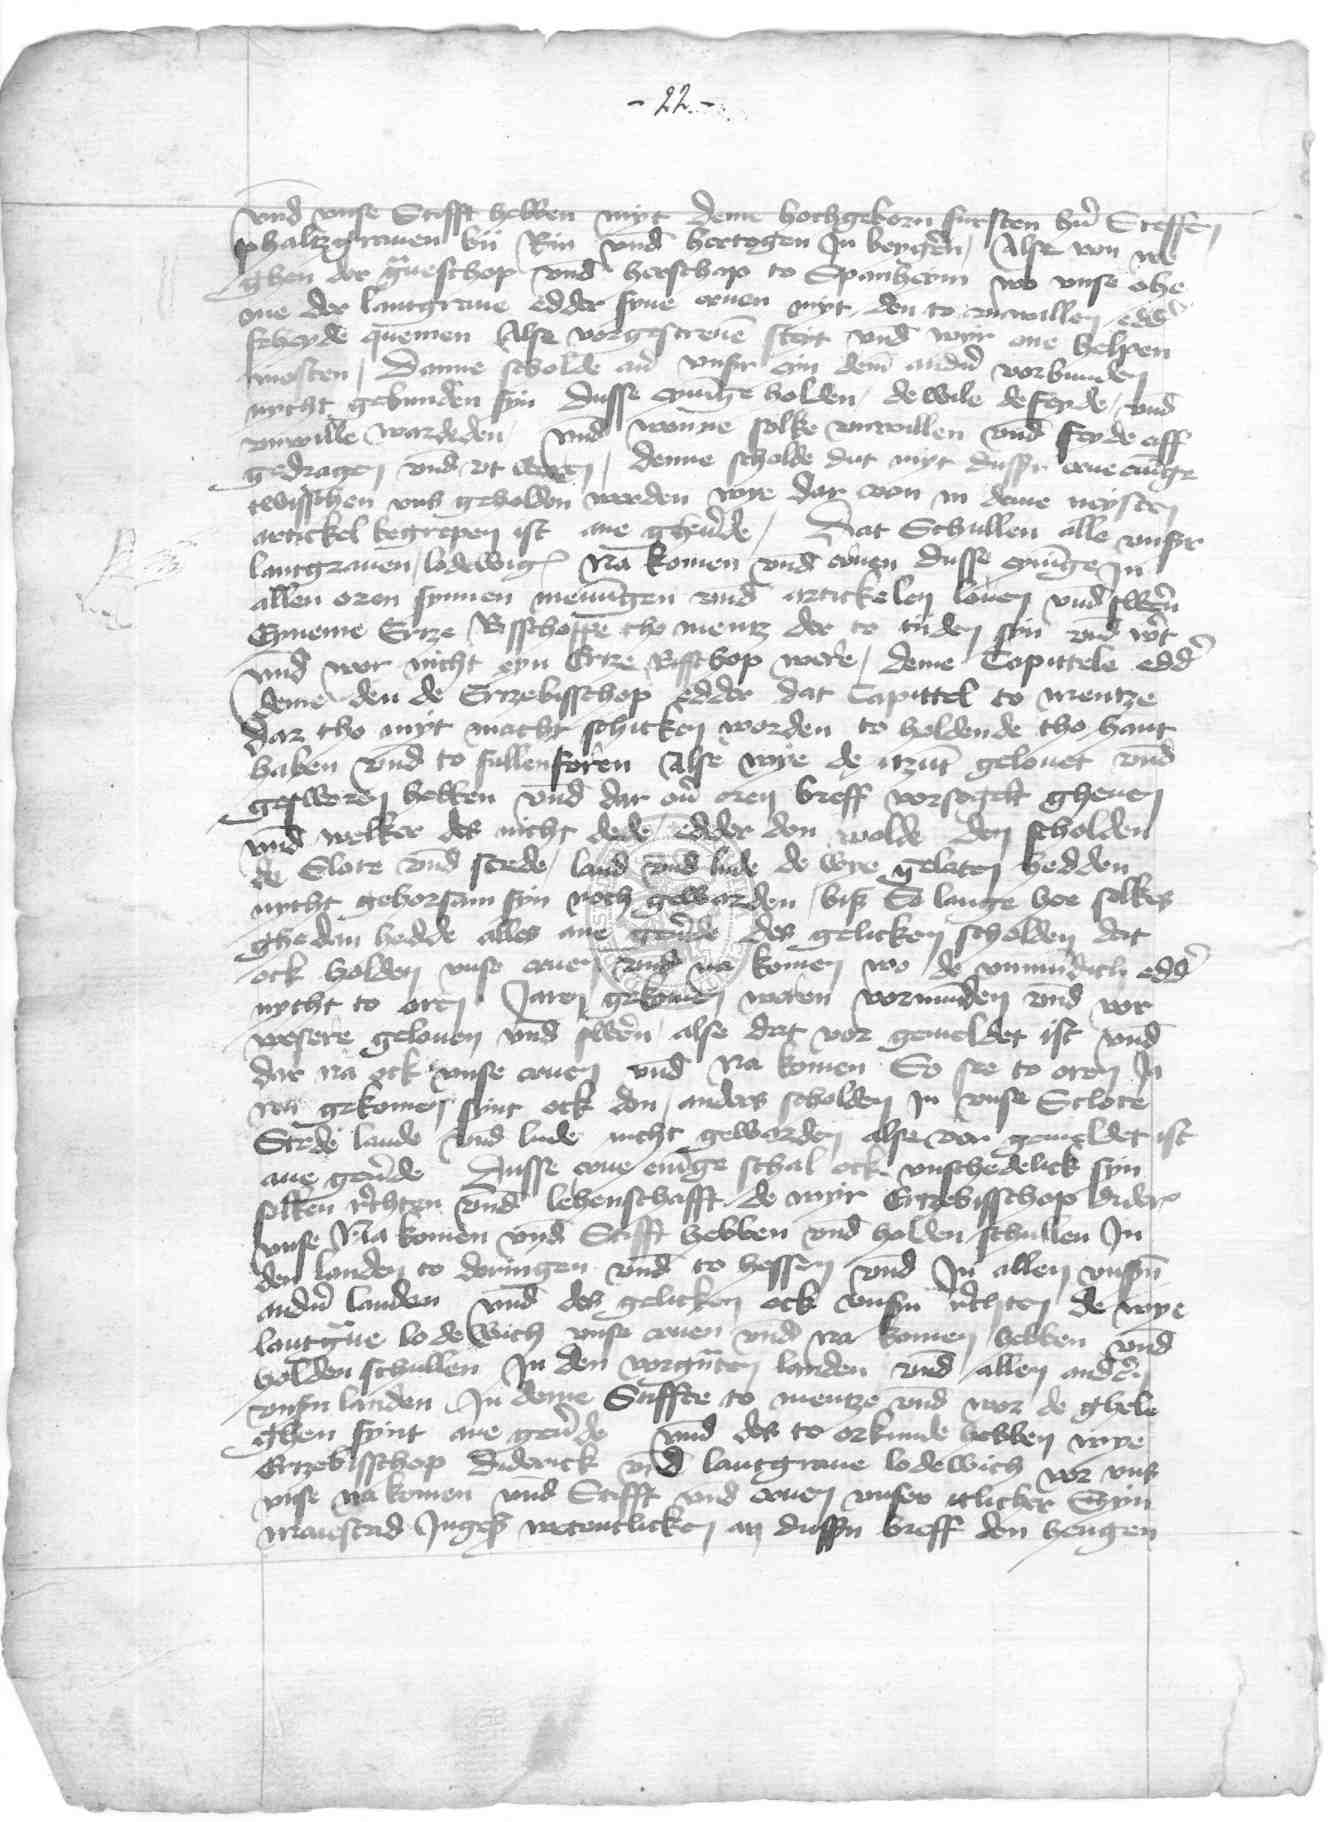 - 22 -
vnd vnse Stifft hebben myt deme hochgeborn fursten hern Steffen
phaltzgrauen bii Rin vnd hertogen In beygern / Alse von we
ghen der graueschop vnd herschap to Spanheym wo vnse ohe
me der lantgraue edder syne eruen myt den to vnwillen edder
feheyde quemen Alse vorgescreuen steit vnd wyr ome helpen
mosten / Danne scholde auer vnser eyn dem andern vorbunden
nycht gebunden syn Dusse eynunge holden / de wile de feyde vnd
vnwille wardeden / vnd wonne solke vnwillen vnd feyde aff
gedragen vnd vt weren / denne scholde dut myt dusser erue eninge
twisschen vns geholden werden wye dar von in deme neysten
artickel begrepen ist ane geuerde / Dat Schullen alle vnser
lantgrauen / lodewigs Na komen vnd eruen dusse eynunge In
allen oren synnen meinungen vnd artickelen louen vnd sweren
Eyneme Ertze Bisschoppe tho mentz der to tiiden syn wert
vnd wor nicht eyn Ertze Bisschop were / deme Capittele edder
deme den de Ertzebisschop edder dat Capittel to mentze
Dar tho myt macht schicken worden to holdende tho hant
haben vnd to fullenforen Alse wye de itzunt gelouet vnd
gesworen hebben vnd dar ouer oren breff vorsegelt gheuen
vnd welker des nicht dede edder don wolde den scholden
de Slote vnd stede / land vnd lude de wye gelaten hedden
nycht gehorsam syn noch gewarden / biß So lange hee solkes
ghedan hedde alles ane geuerde des gelicken scholden dat
ock holden vnse eruen vnd na komen wo de vnmundich edder
nycht to oren Jaren gekomen weren vormunden vnd vor
wesere gelouen vnd sweren alse dat vor gemeldet ist vnd
dar na ock vnse eruen vnd Na komen So see to oren Ja
ren gekomen sint ock don / anders scholden In vnse Sclote
Stede lande vnd lude nicht gewarden alse vor gemeldet ist
ane geuerde Dusse erue eninge schal ock vnschedelick syn
solken rechten vnd lehenschafft de wyr Ertzebisschop Dider
vnse Na komen vnd Stifft hebben vnd holden schullen In
den landen to doringen vnd to hessen vnd In allen vnsern
andern landen vnd des gelicken ock vnsern rechten de wye
lantgraue lodewich vnse eruen vnd na komen hebben vnd
holden schullen In den vorgenanten landen vnd allen andern
vnsern landen In deme Stiffte to mentze vnd wor de ghele
ghen synt ane geuerde vnd des to orkunde hebben wye
Ertzebisschop Diderick vnd lantgraue lodewich vor vns
vnse na komen vnd Stifft vnd eruen vnser itlicker Syn
maiestad Ingesegel wetentlicken an dussen breff don hengen